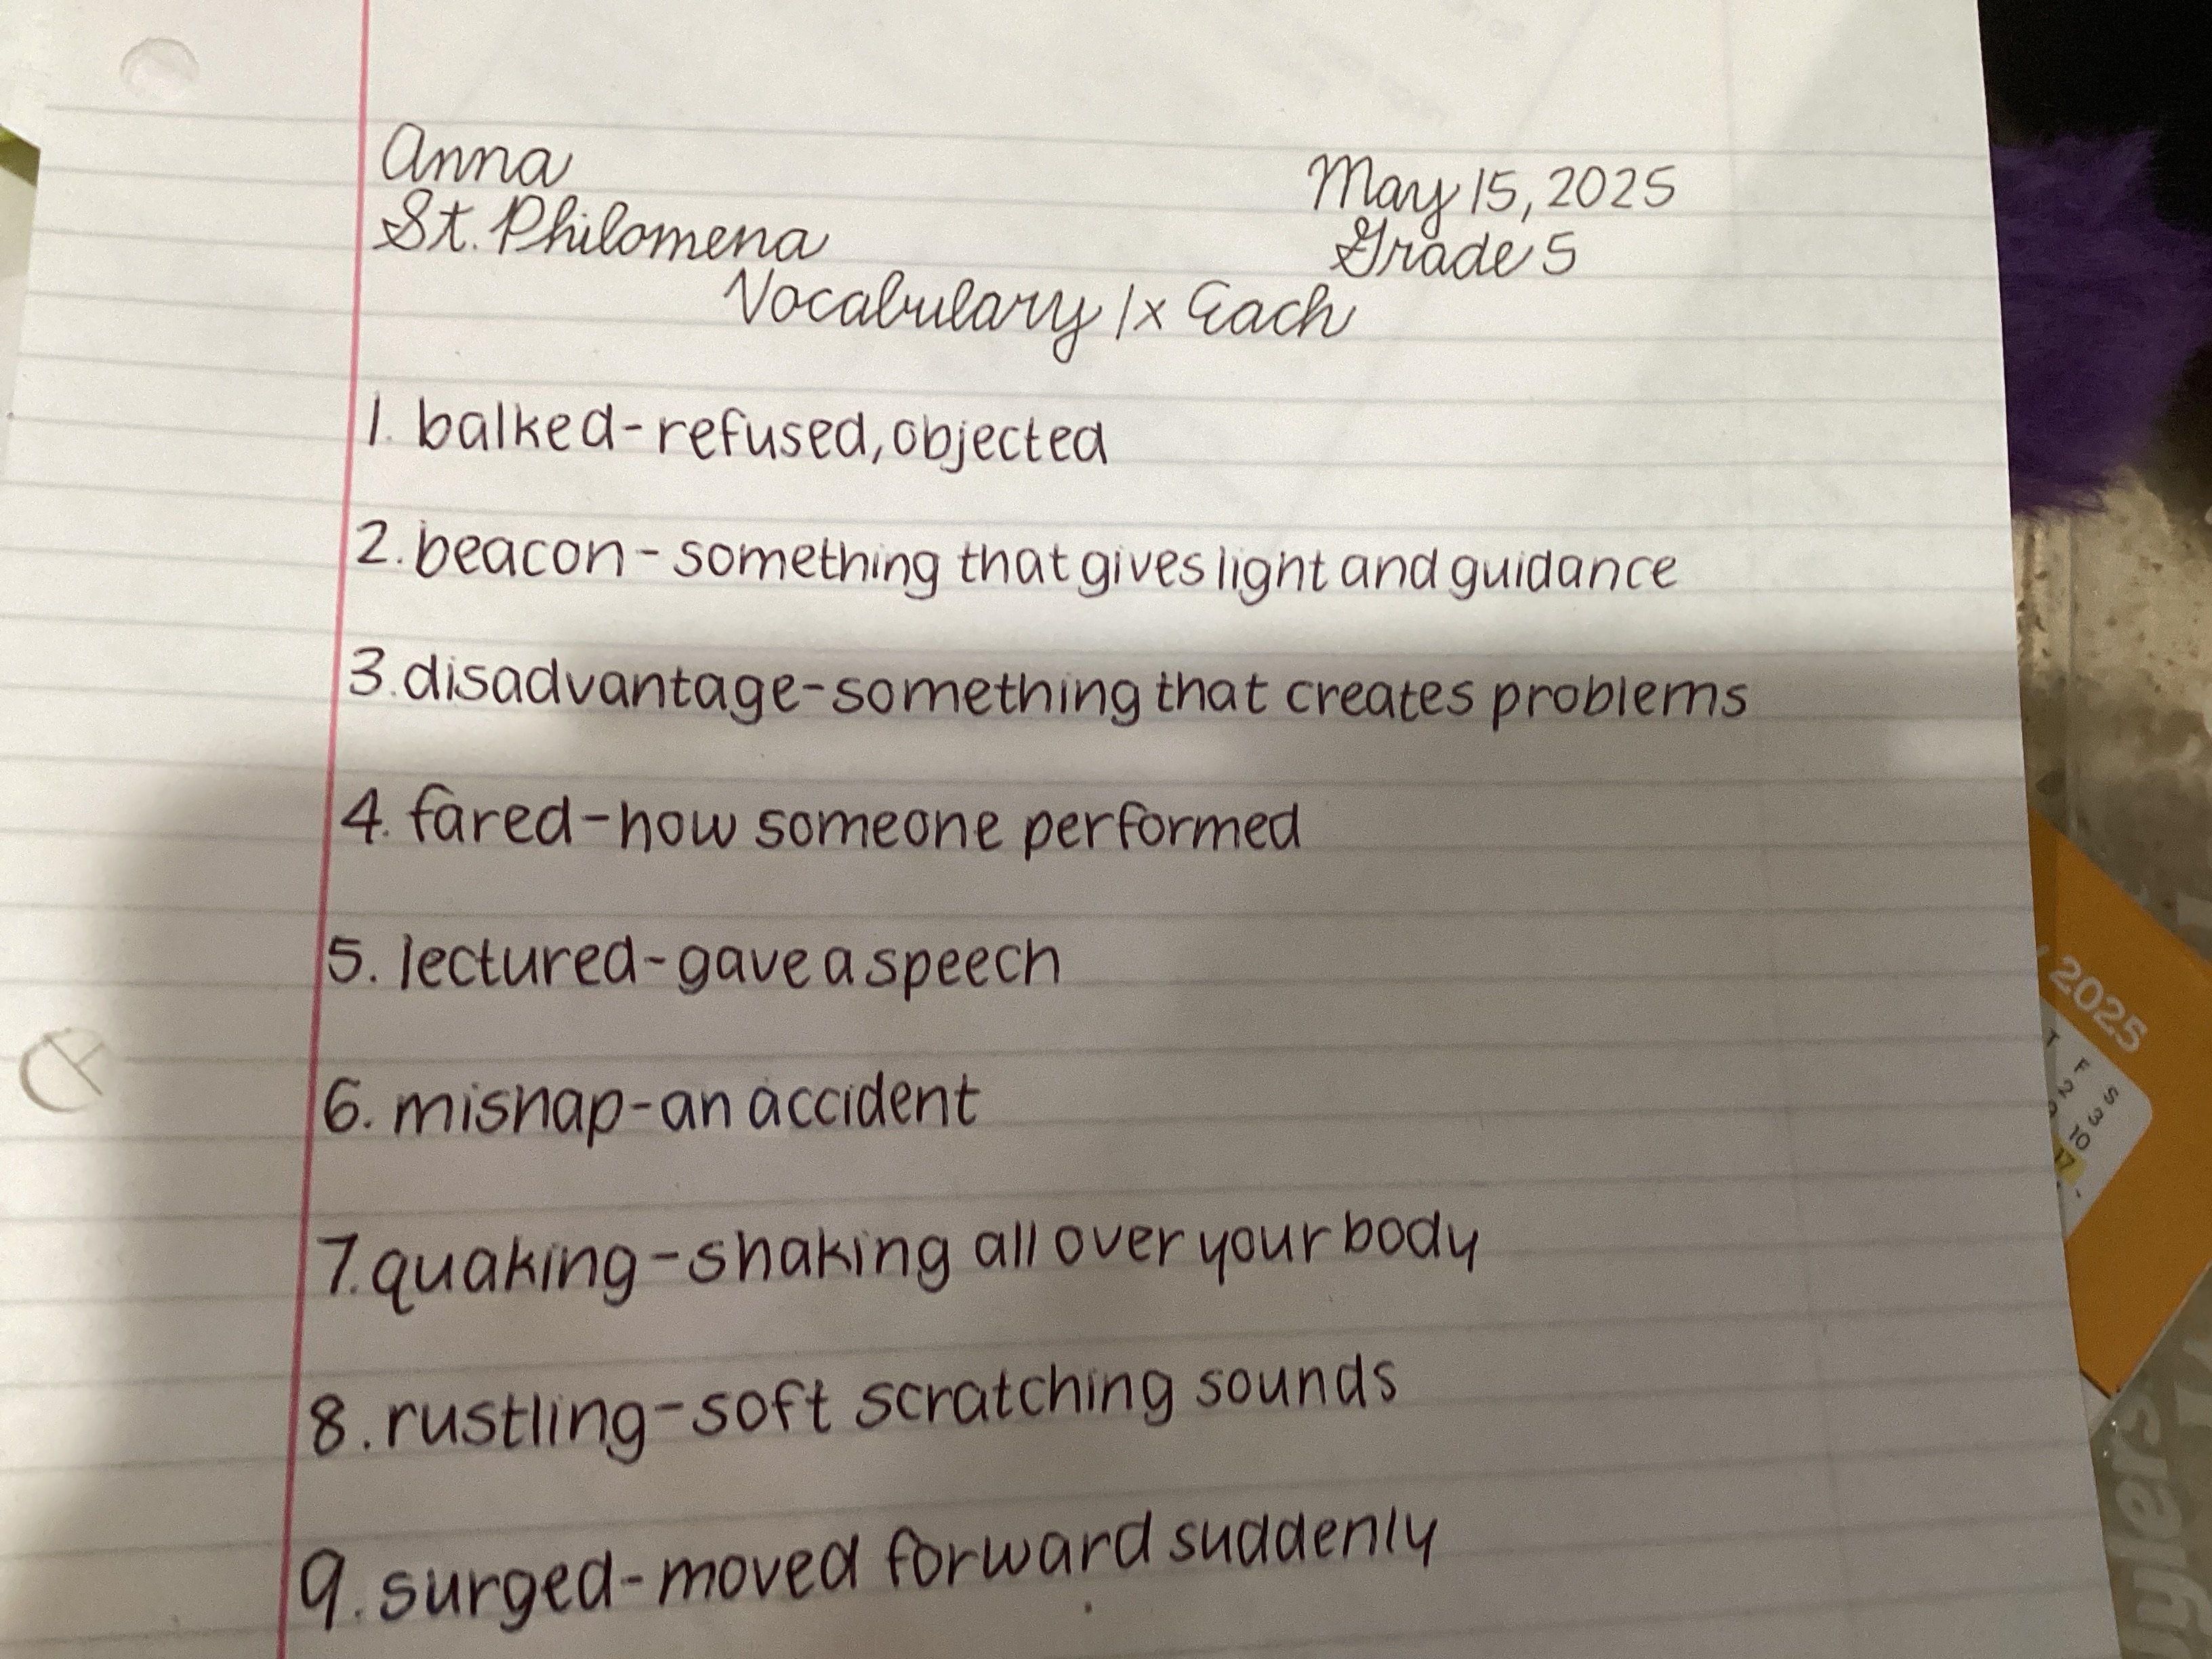 Anna
May 15, 2025
St. Philomena
Grade 5
Vocabulary 1x Each
1. balked-refused, objected
2. beacon - something that gives light and guidance
3. disadvantage-something that creates problems
4. fared-how someone performed
5. lectured-gave a speech
6. mishap-an accident
7. quaking-shaking all over your body
8. rustling-soft scratching sounds
9. surged-moved forward suddenly
2025
T F S
2 3
10
17